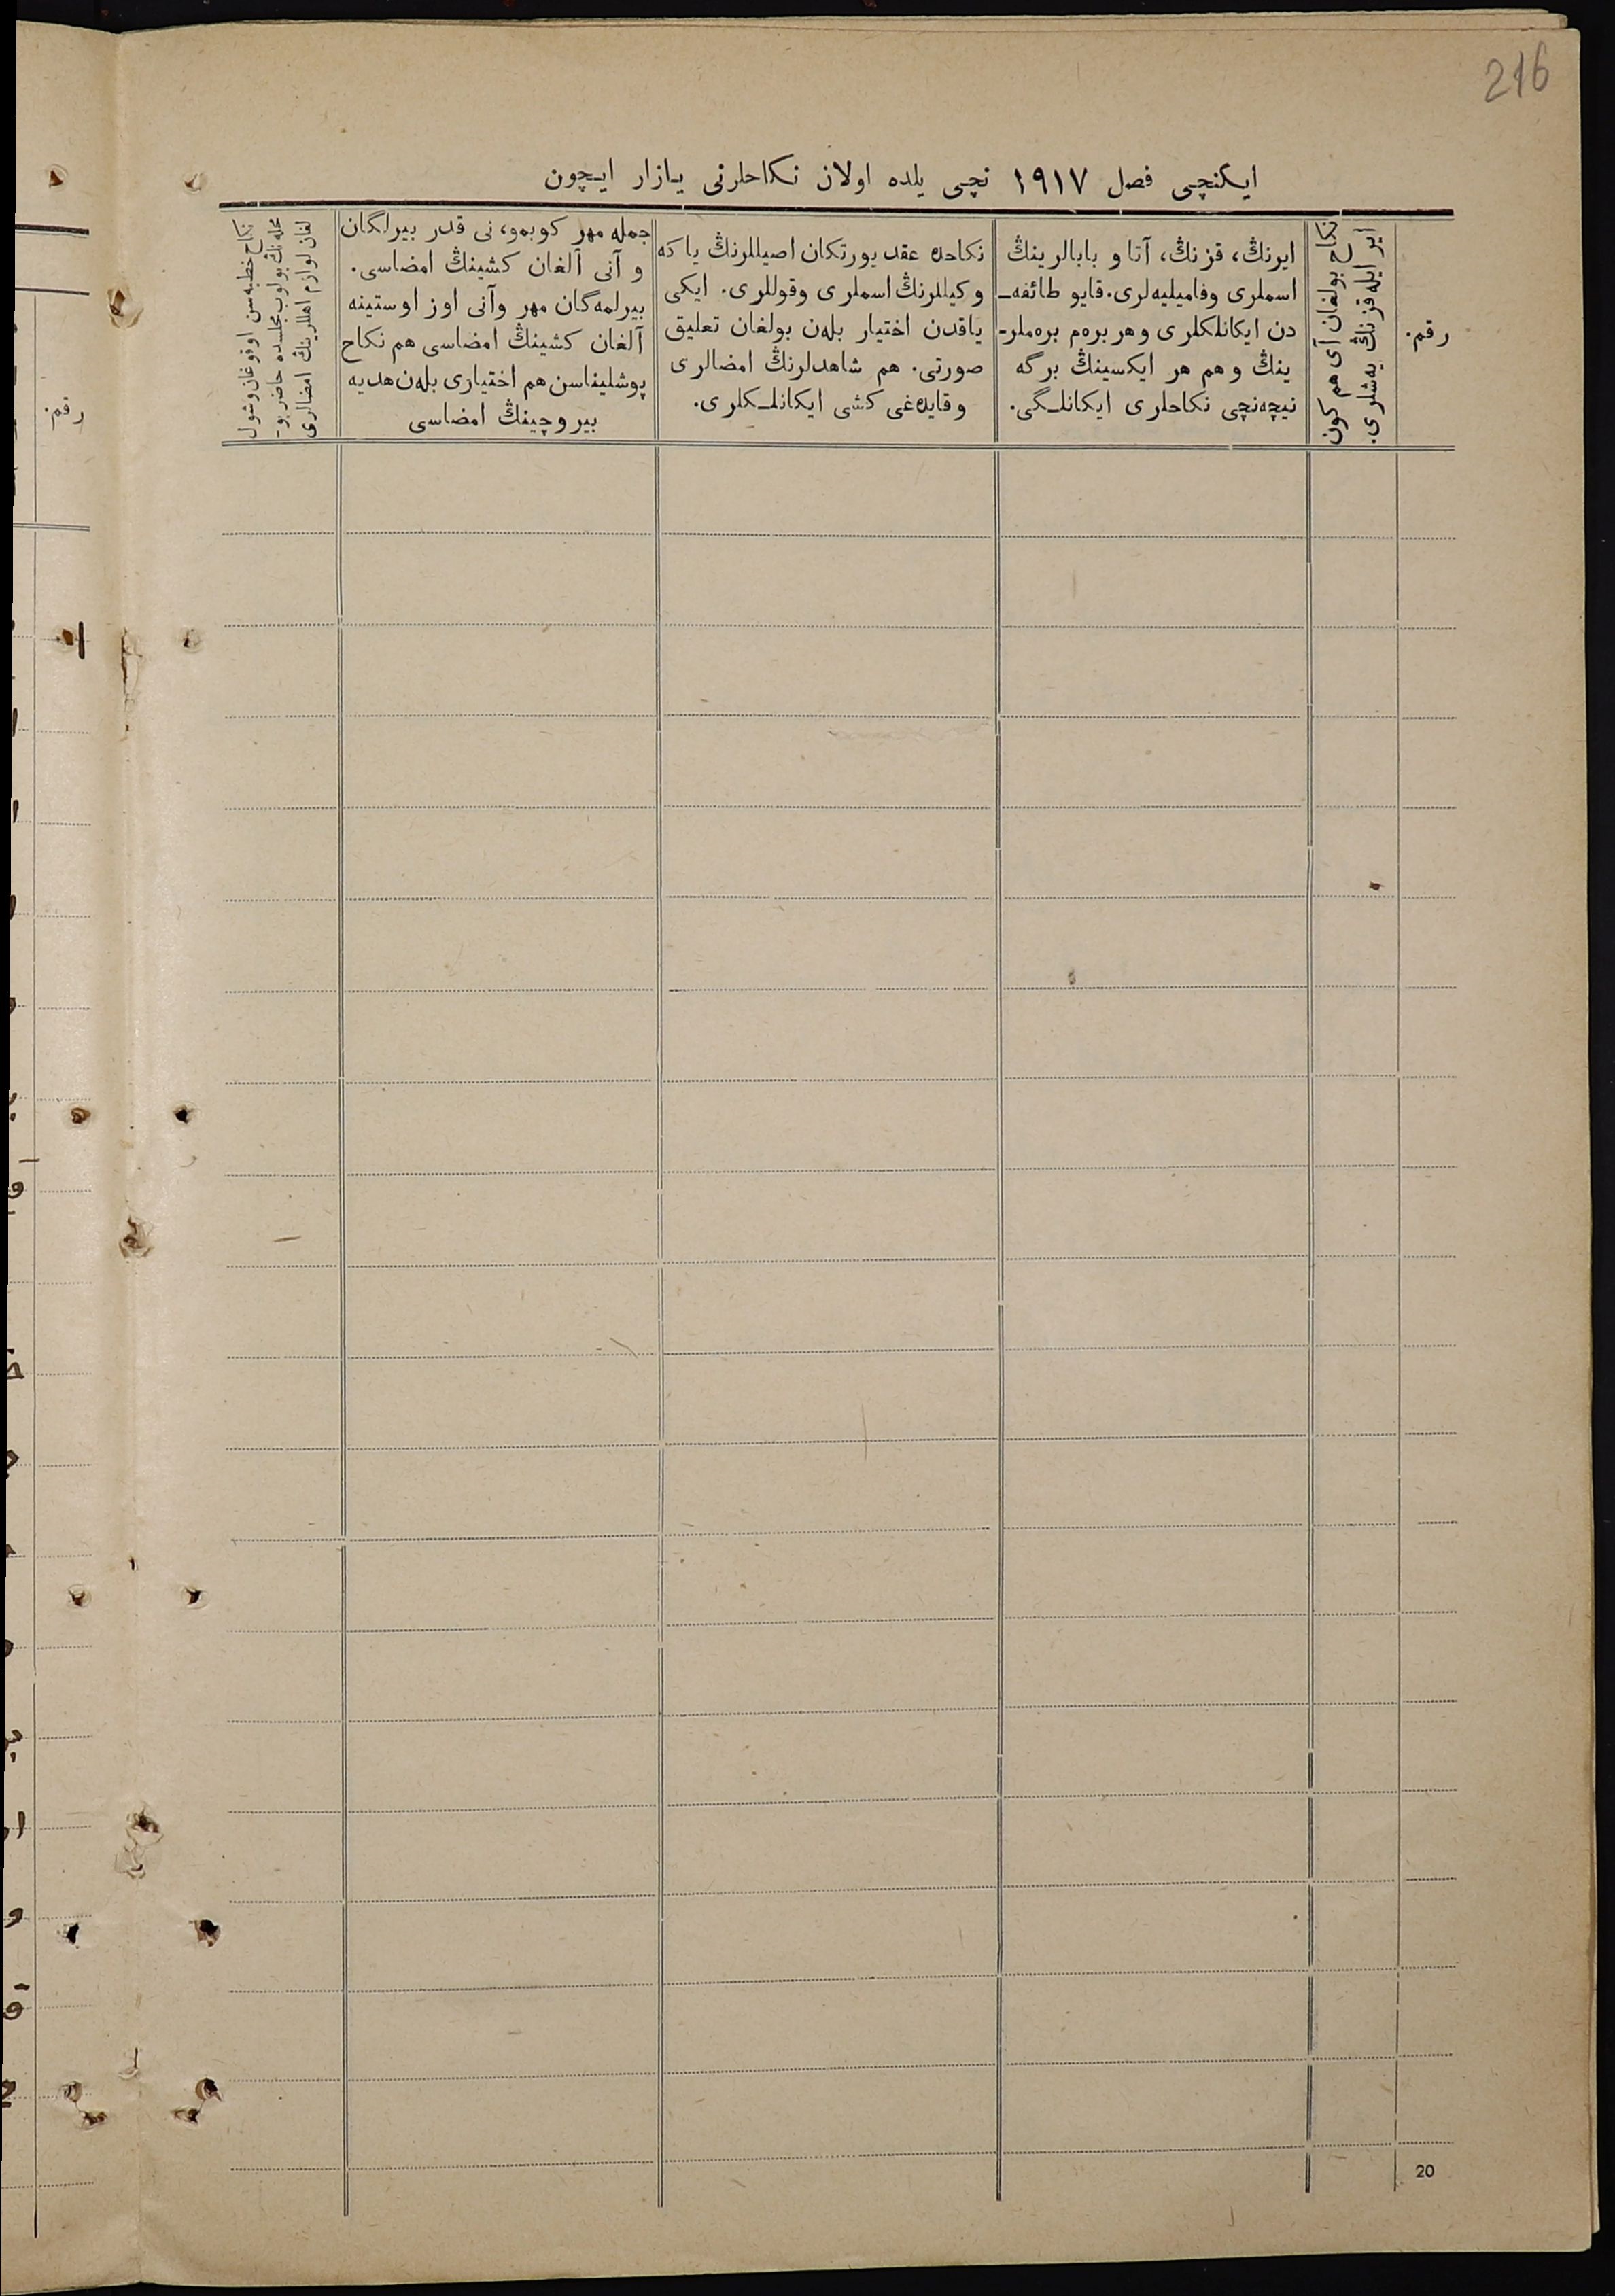 216
ایکنچی فصل ١٩١٧ نچی یلده اولان نکاحلرنی یازار ایچون
رقم.
نکاح بولغان آی هم کون
ایر ایله قزنڭ یه‌شلری.
ایرنڭ، قزنڭ، آتا و بابالرینڭ
اسملری وفامیلیه‌لری. قایو طائفه‌ـ
دن ایکانلکلری وهر بره‌م بره‌ملرـ
ینڭ وهم هر ایکسینڭ برگه
نیچه‌نچی نکاحلری ایکانلـگی.
نکاحده عقد یورتکان اصیللرنڭ یا که
وکیللرنڭ اسملری وقوللری. ایکی
یاقدن اختیار بله‌ن بولغان تعلیق
صورتی. هم شاهدلرنڭ امضالری
وقایده‌غی کشی ایکانلـکلری.
جمله مهر کوبمو، نی قدر بیرلگان
و آنی آلغان کشینڭ امضاسی.
بیرلمه‌گان مهر وآنی اوز اوستینه
آلغان کشینڭ امضاسی هم نکاح
پوشلیناسن هم اختیاری بله‌ن هدیه
بیروچینڭ امضاسی
نکاح خطبه‌سن اوقوغان وشول
محله‌نڭ بولوب مجلـده حاضر بوـ
لغان لوازم اهللرینڭ امضالری
رقم.
20